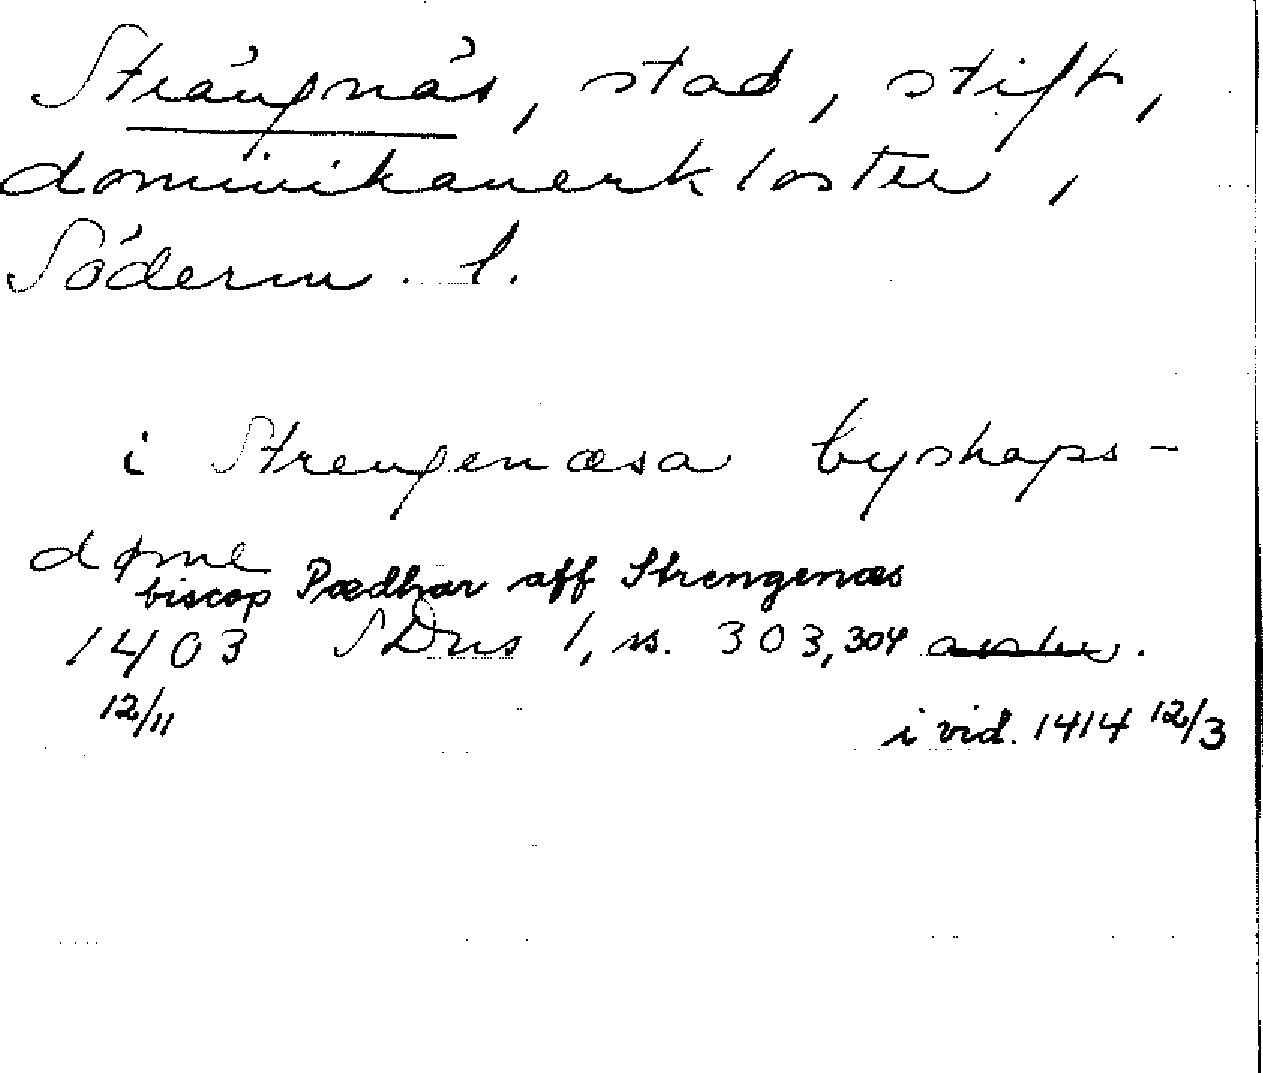 Strängnäs, stad, stift,
dominikanerkloster,
Söderm. l.
i Strengenæsa byskops-
døme
biscop Pædhar aff Strengenæs
1403 SDns 1, s. 303,304
12/11
i vid. 1414 12/3